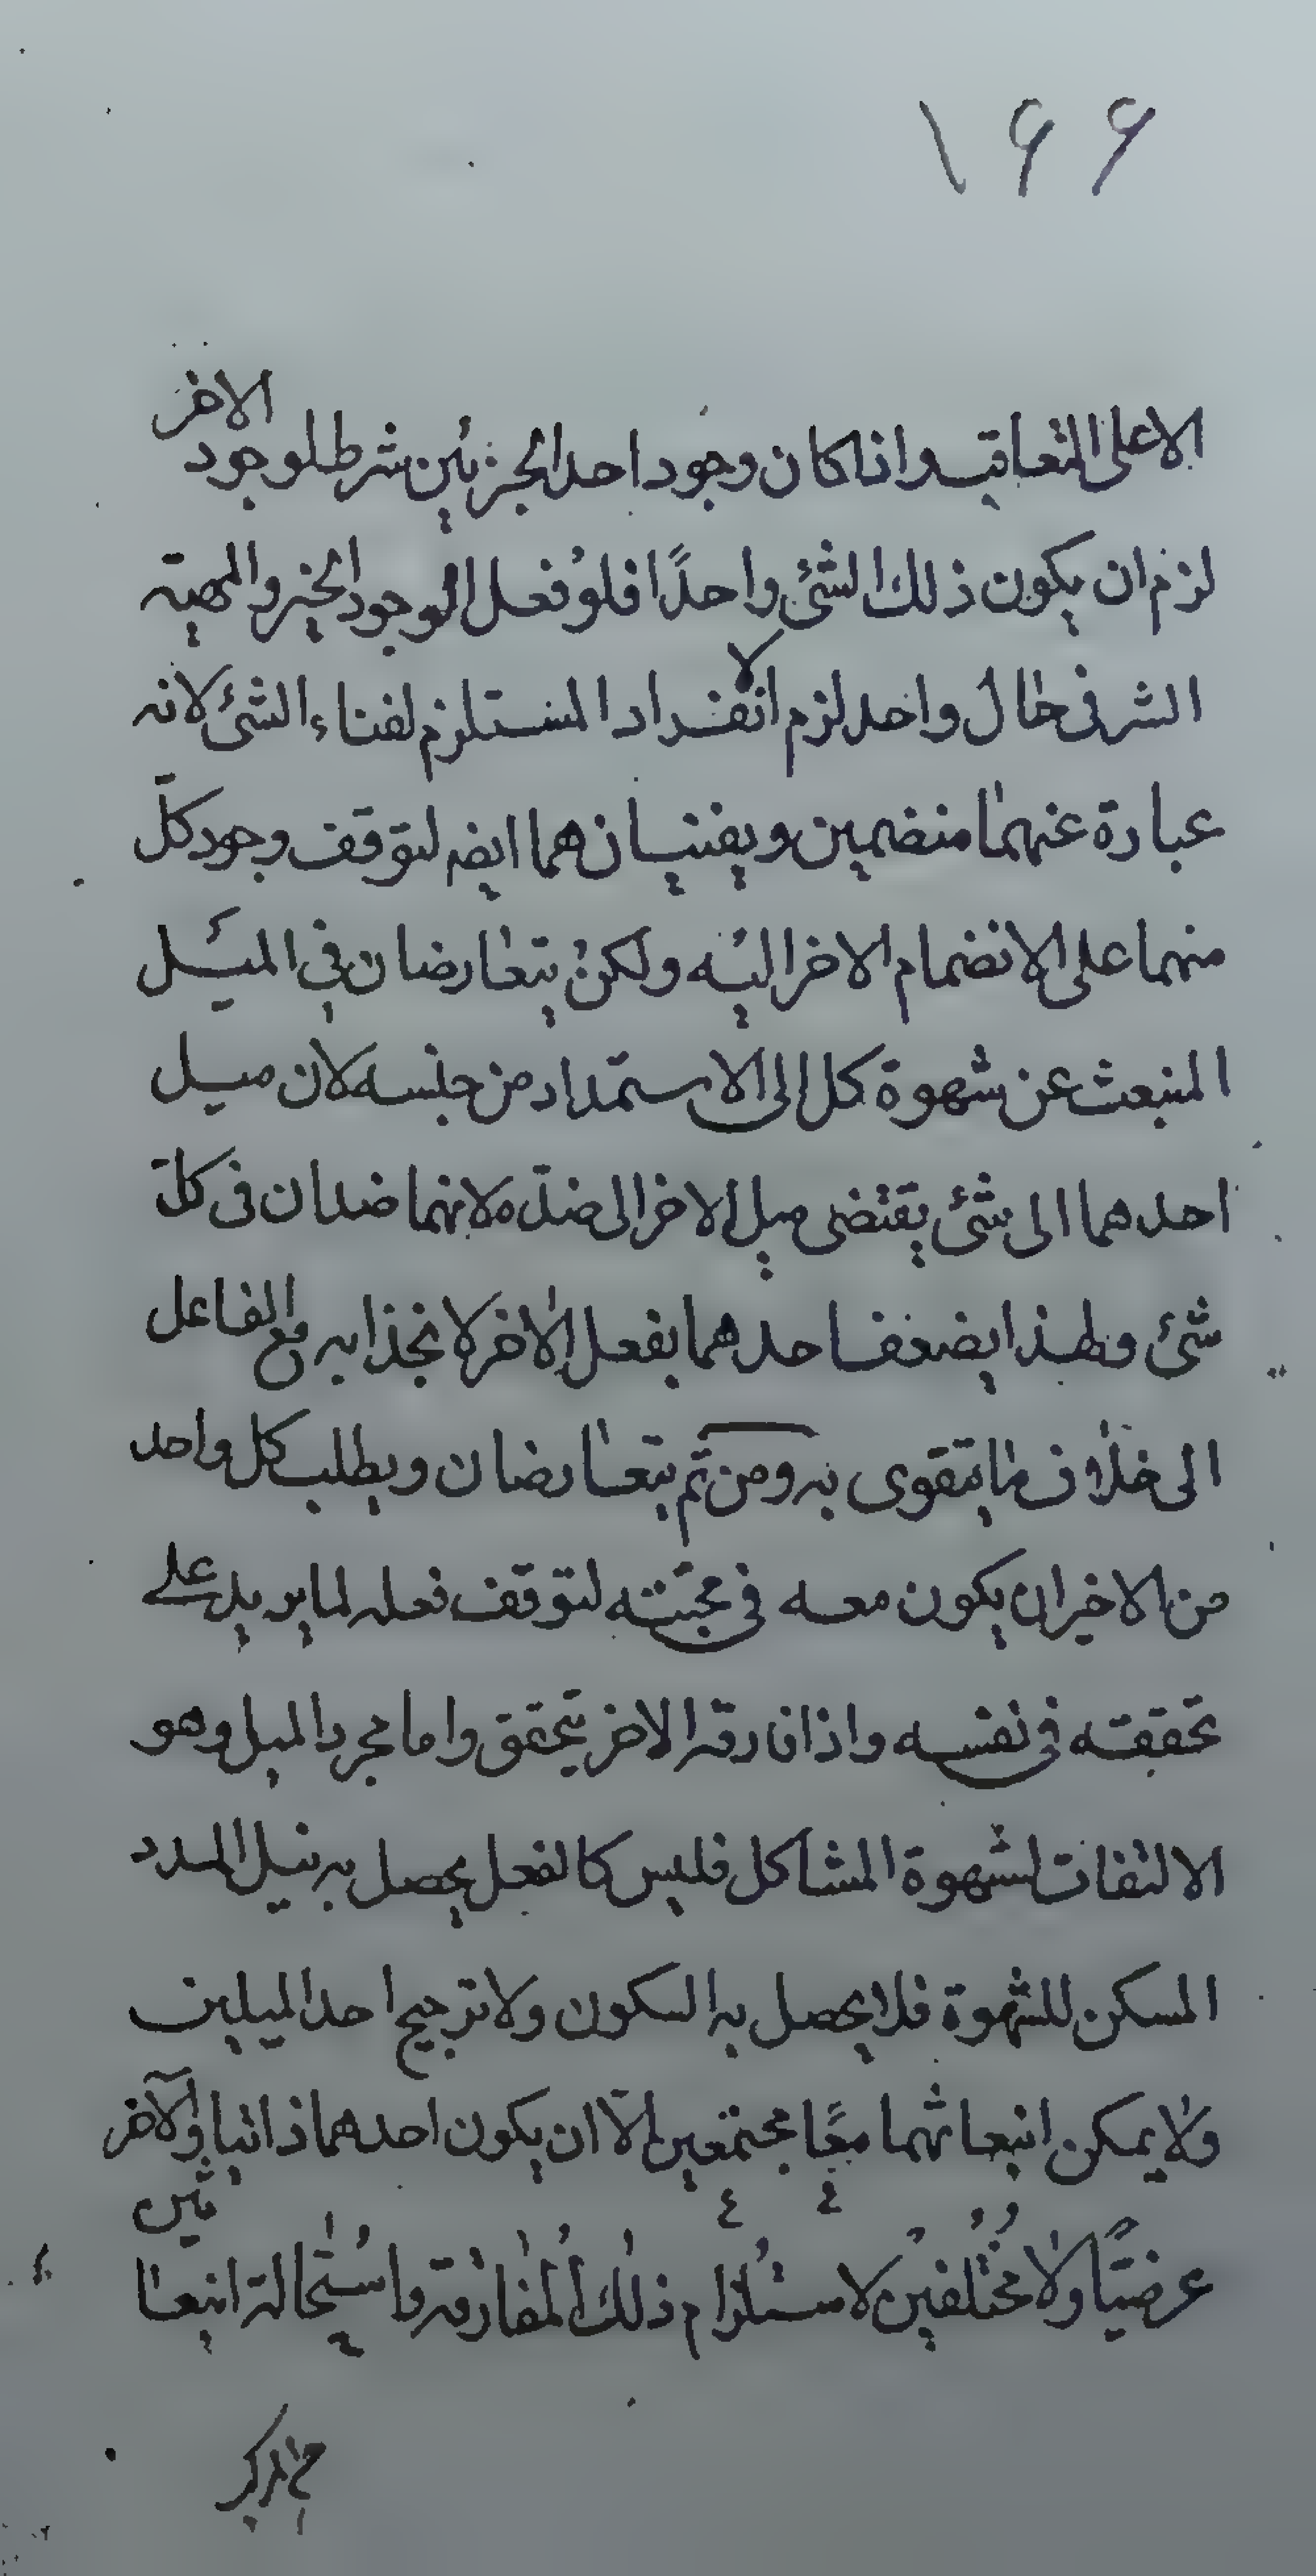 ١٦٦
الا على التعاقب واذا كان وجود احد الجزئين شرط لوجود الاخر
لزم ان يكون ذلك الشئ واحدًا فلو فعل الوجود الخير والمهية
الشر فى حال واحد لزم الانفراد المستلزم لفناء الشئ لانه
عبارة عنهما منضمين ويفنيان هما ايضا لتوقف وجود كلّ
منهما على الانضمام الاخر اليه ولكن يتعارضان فى الميل
المنبعث عن شهوة كل الى الاستمداد من جنسه لان ميل
احدهما الى شئ يقتضى ميل الاخر الى ضدّه لانهما ضدان فى كلّ
شئ ولهذا يضعف احدهما بفعل الاخر لانجذابه مع الفاعل
الى خلاف ما يتقوى به ومن ثم يتعارضان ويطلب كل واحد
من الاخر ان يكون معه فى محبّته لتوقف فعله لما يريد على
تحققه فى نفسه واذا فارقه الاخر يتحقق واما مجرد الميل وهو
الالتفات لشهوة المشاكل فليس كالفعل يحصل به نيل المدد
المسكن للشهوة فلا يحصل به السكون ولا ترجيح احد الميلين
ولا يمكن انبعاثهما معًا مجتمعين الّا ان يكون احدهما ذاتيا والآخر
عرضيًّا ولا مختلفين لاستلزام ذلك المفارقة واستحالة انبعا ثين